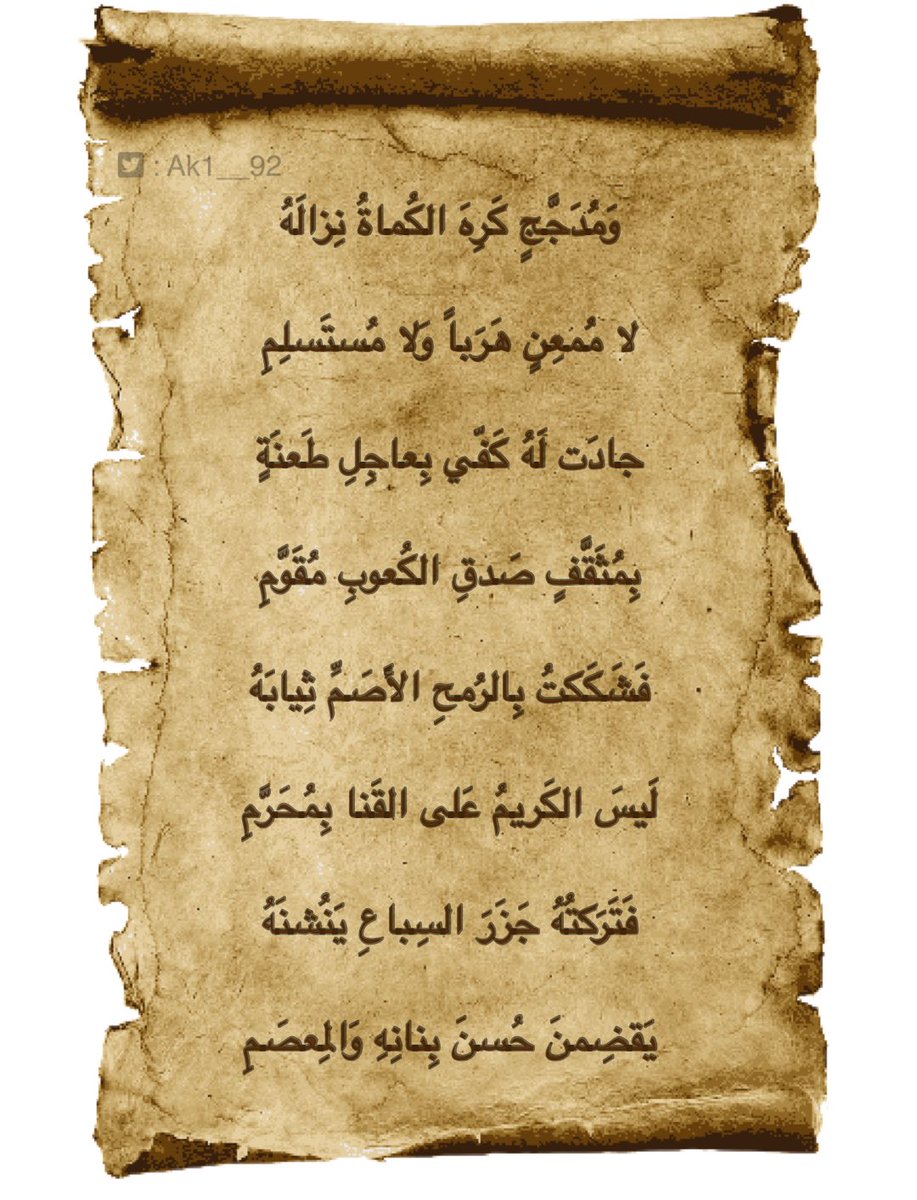 : Ak1__92
وَمُدَجَّجٍ كَرِهَ الكُماةُ نِزالَهُ
لا مُمعِنٍ هَرَباً وَلا مُستَسلِمِ
جادَت لَهُ كَفّي بِعاجِلِ طَعنَةٍ
بِمُثَقَّفٍ صَدقِ الكُعوبِ مُقَوَّمِ
فَشَكَكتُ بِالرُمحِ الأَصَمِّ ثِيابَهُ
لَيسَ الكَريمُ عَلى القَنا بِمُحَرَّمِ
فَتَرَكتُهُ جَزَرَ السِباعِ يَنُشنَهُ
يَقضِمنَ حُسنَ بِنانِهِ وَالمِعصَمِ